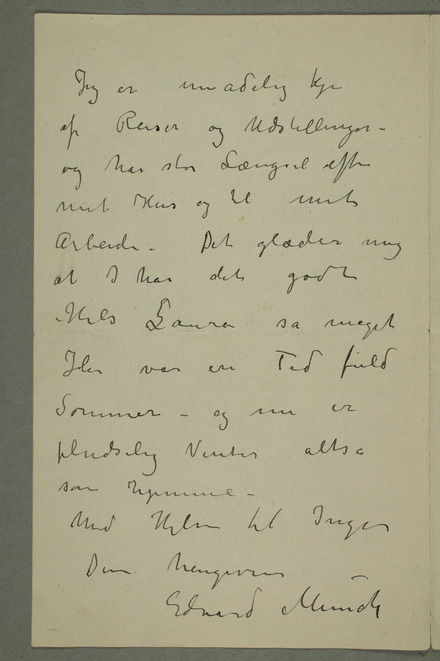 Jeg er umådelig kje
af Reiser og Udstillinger –
og har stor Længsel efter
mit Hus og til mit
Arbeide – Det glæder mig
at I har det godt
– Hils Laura så meget
Her var en Tid fuld
Sommer – og nu er
pludselig Vinter altså
som hjemme –
Med Hilsen til Inger
Din hengivne
Edvard Munch